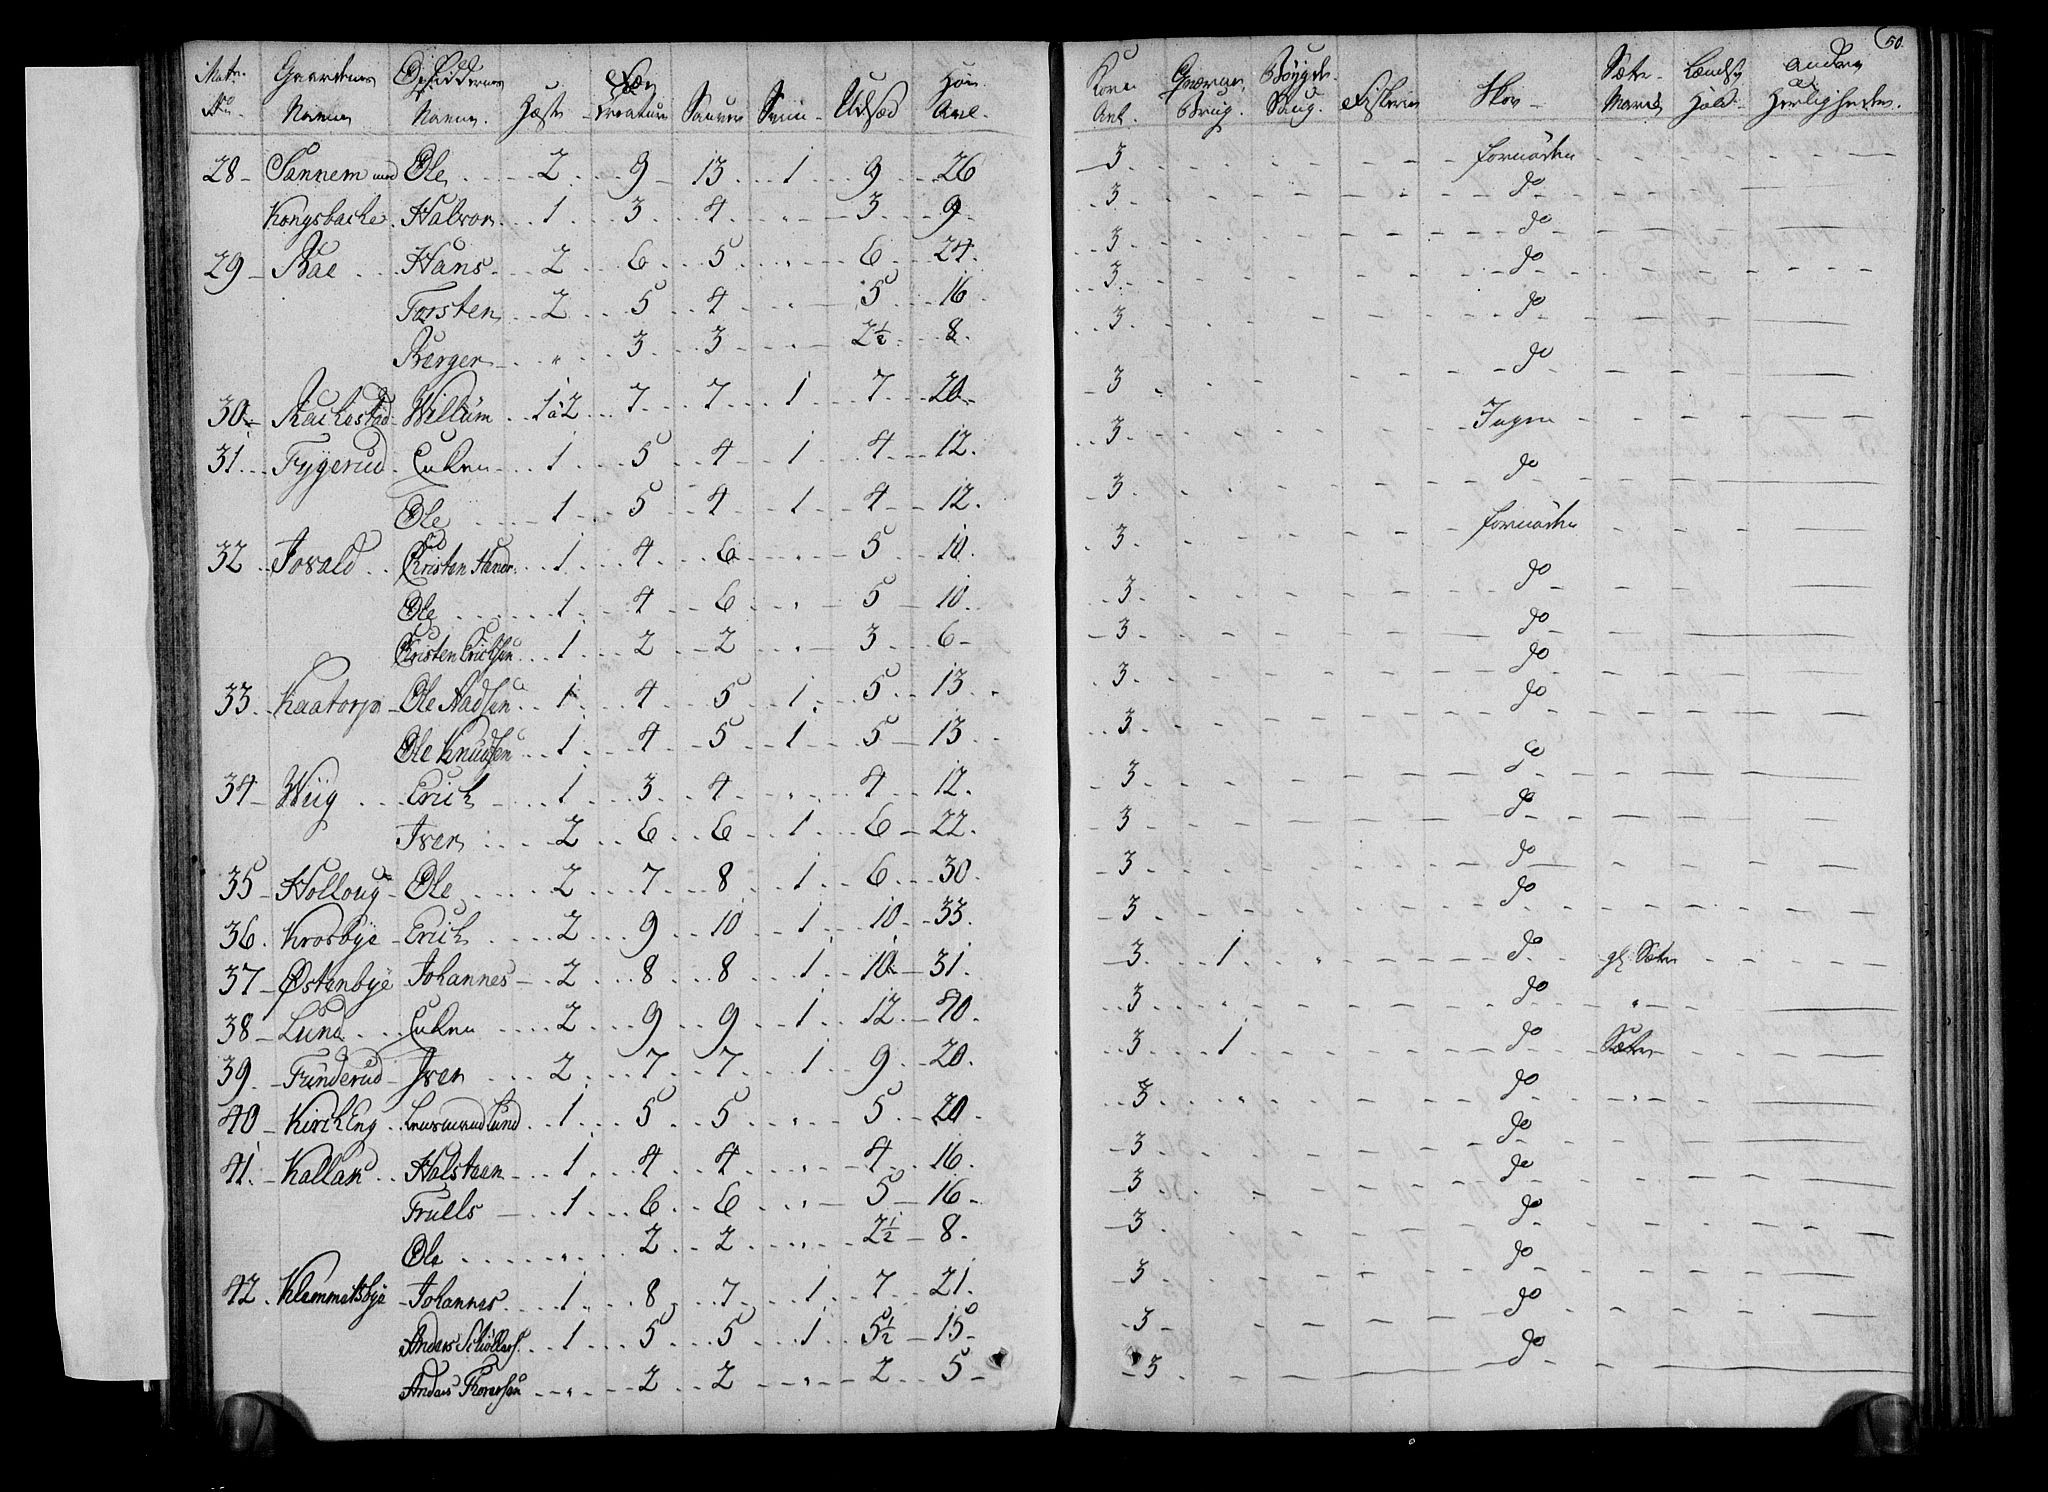 50.
Matr. No | Gaardenes Navne | Opsiddernes Navne. | Hæste | Fæe Creature | Sauver | Sviin | Udsæd | Høe Avl. | Korn Avl. | Qværne Brug. | Bøygde Saug. | Fiskerie | Skov | Sæter March | Landsk Hold | Andre Herligheder.
28 | Sannem med | Ole | 2 | 9 | 13 | 1 | 9 | 26 | 3 | fornøden
Kongsbache | Halvor | 1 | 3 | 4 | " | 3 | 9 | 3 | do
29 | Rae | Hans | 2 | 6 | 5 | " | 6 | 24 | 3 | do
Torsten | 2 | 5 | 4 | " | 5 | 16 | 3 | do
Berger | " | 3 | 3 | " | 2½ | 8 | 3 | do
30 | Rachestad | Willum | 1 à 2 | 7 | 7 | 1 | 7 | 20 | 3 | do
31 | Fygerud | Enken | 1 | 5 | 4 | 1 | 4 | 12 | 3 | Ingen
Ole | 1 | 5 | 4 | 1 | 4 | 12 | 3 | do
32 | Jovald | Christen Hendr. | 1 | 4 | 6 | " | 5 | 10 | 3 | fornøden
Ole | 1 | 4 | 6 | " | 5 | 10 | 3 | do
Christen Erichsen | 1 | 2 | 2 | " | 3 | 6 | 3 | do
33 | Kaatorp | Ole Aadsen | 1 | 4 | 5 | 1 | 5 | 13 | 3 | do
Ole Knudsen | 1 | 4 | 5 | 1 | 5 | 13 | 3 | do
34 | Wiig | Erich | 1 | 3 | 4 | " | 4 | 12 | 3 | do
Iver | 2 | 6 | 6 | 1 | 6 | 22 | 3 | do
35 | Holloug | Ole | 2 | 7 | 8 | 1 | 6 | 30 | 3 | do
36 | Krosbye | Erich | 2 | 9 | 10 | 1 | 10 | 33 | 3 | do
37 | Østenbye | Johannes | 2 | 8 | 8 | 1 | 10 | 31 | 3 | 1 | " | do | gl. Sæter
38 | Lund | Enken | 2 | 9 | 9 | 1 | 12 | 40 | 3 | " | do | "
39 | Funderud | Iver | 2 | 7 | 7 | 1 | 9 | 20 | 3 | 1 | do | Sæter
40 | Kirch Eng | Lensmand Lund | 1 | 5 | 5 | " | 5 | 20 | 3 | " | do | "
41 | Kallak | Halsteen | 1 | 4 | 4 | " | 4 | 16 | 3 | do
Trulls | 1 | 6 | 6 | " | 5 | 16 | 3 | do
Ole | " | 2 | 2 | " | 2½ | 8 | 3 | do
42 | Klemmetsbye | Johannes | 1 | 8 | 7 | 1 | 7 | 21 | 3 | do
Anders Schiøllers. | 1 | 5 | 5 | 1 | 5½ | 15 | 3 | do
Anders Thoresen | " | 2 | 2 | " | 2 | 5 | 3 | do